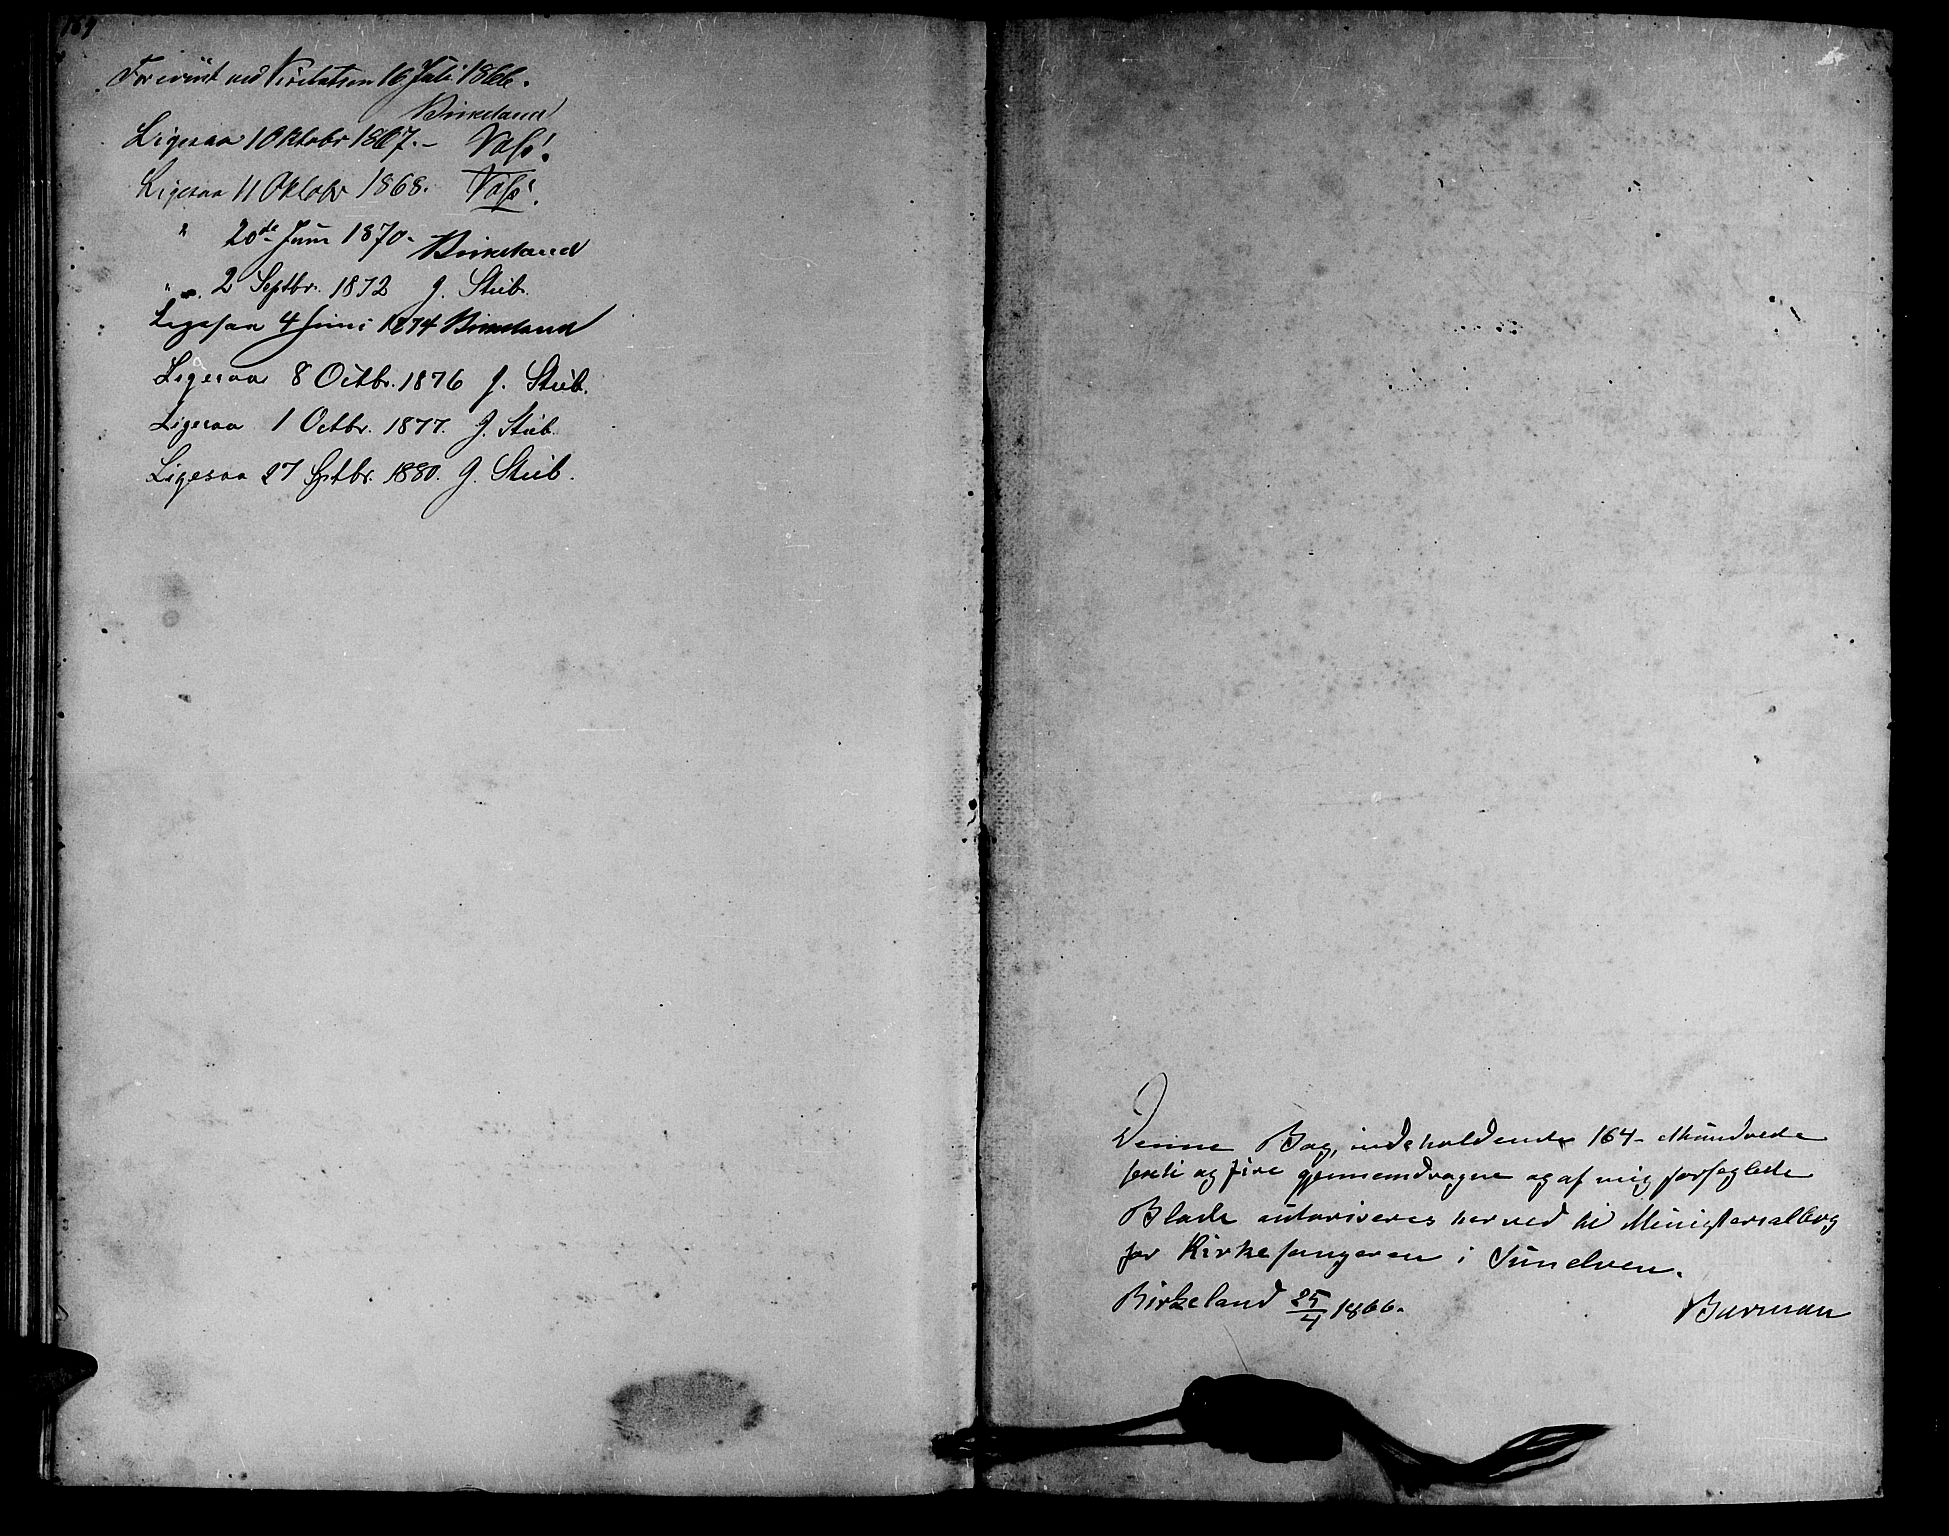 Forevist ved Visitatsen 16 Juli 1866.
Birkeland
Ligesaa 1 Oktobr 1867. –
Ligesaa 11 Oktobr 1868.
" 20de Juni 1870. Birkeland
" 2 Septbr. 1872 J. Stub.
Ligesaa 4 Juni 1874 Birkeland
Ligesaa 8 Octbr. 1876 J. Stub.
Ligesaa 1 Octbr. 1877. J. Stub.
Ligesaa 27 Sptbr. 1880. J. Stub.
Denne Bog, indeholdende 164 – Ethundrede
sexti og fire gjennemdragne og af mig forseglede
Blade autoriseres herved til Ministerialbog
for Kirkesangeren i Sundven.
Birkeland 25/4 1866.
Burman